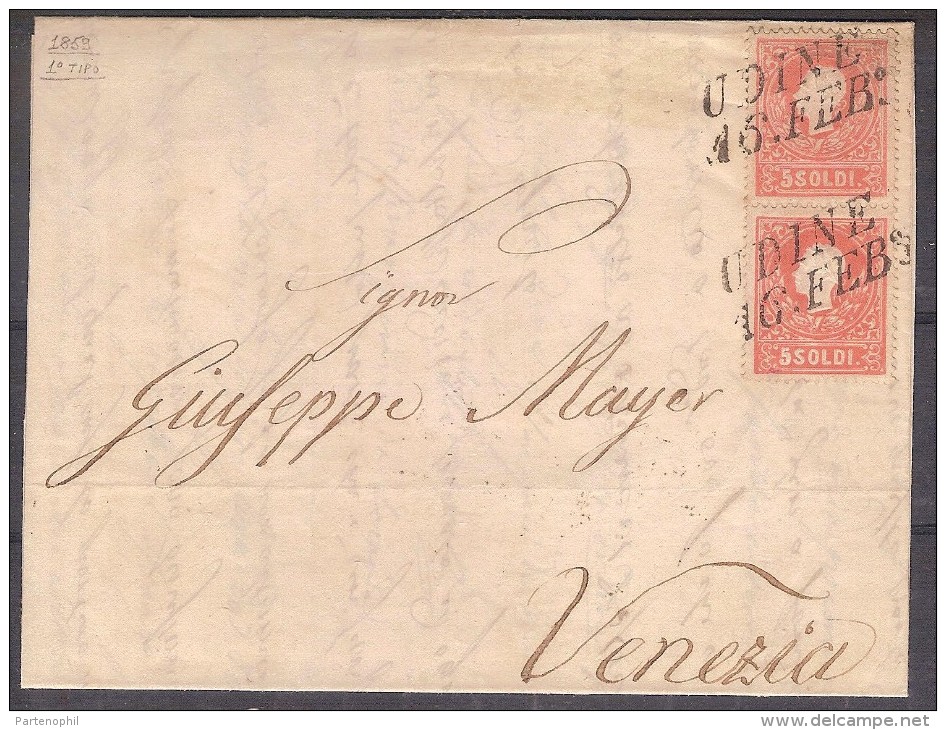 1859
1º TIPO
UDINE
16.FEB.º
5 SOLDI.
UDINE
16.FEBº
5 SOLDI.
Signor
Giuseppe Mayer
Venezia
Partenophil
delcampe.net